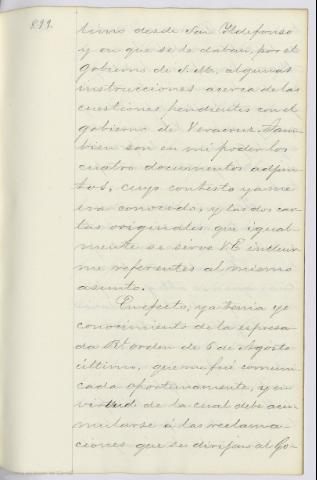 811.
timo desde San Yldefonso
y en que se le daban, por el
gobierno de S. M., algunas
instrucciones acerca de las
cuestiones pendientes con el
gobierno de Veracruz. Tam-
bien son en mi poder los
cuatro documentos adjun-
tos, cuyo contesto ya me
era conocido, y las dos car-
tas originales que igual-
mente se sirve V.E. incluir
me referentes al mismo
asunto.
En efecto, ya tenia yo
conocimiento de la espresa-
da Rl. orden de 6 de Agosto
último, que me fué comuni
cada oportunamente, y en
virtud de la cual debe acu-
mularse á las reclama-
ciones que se dirijan al Go-